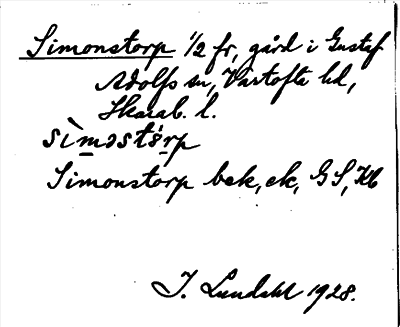 Simonstorp 1/2 fr, gård i Gustaf
Adolfs sn, Vartofta hd,
Skarab. l.
sìmɔstǿrp
Simonstorp bek, ek, GS, Kb
J. Lundahl 1928.